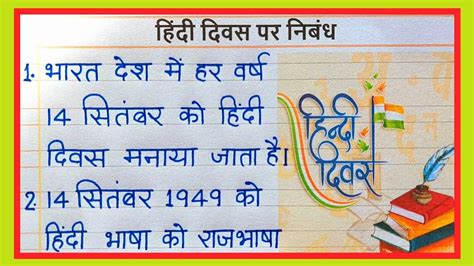 हिंदी दिवस पर निबंध
1. भारत देश में हर वर्ष
14 सितंबर को हिंदी
दिवस मनाया जाता है।
हिन्दी
दिवस
2. 14 सितंबर 1949 को
हिंदी भाषा को राजभाषा